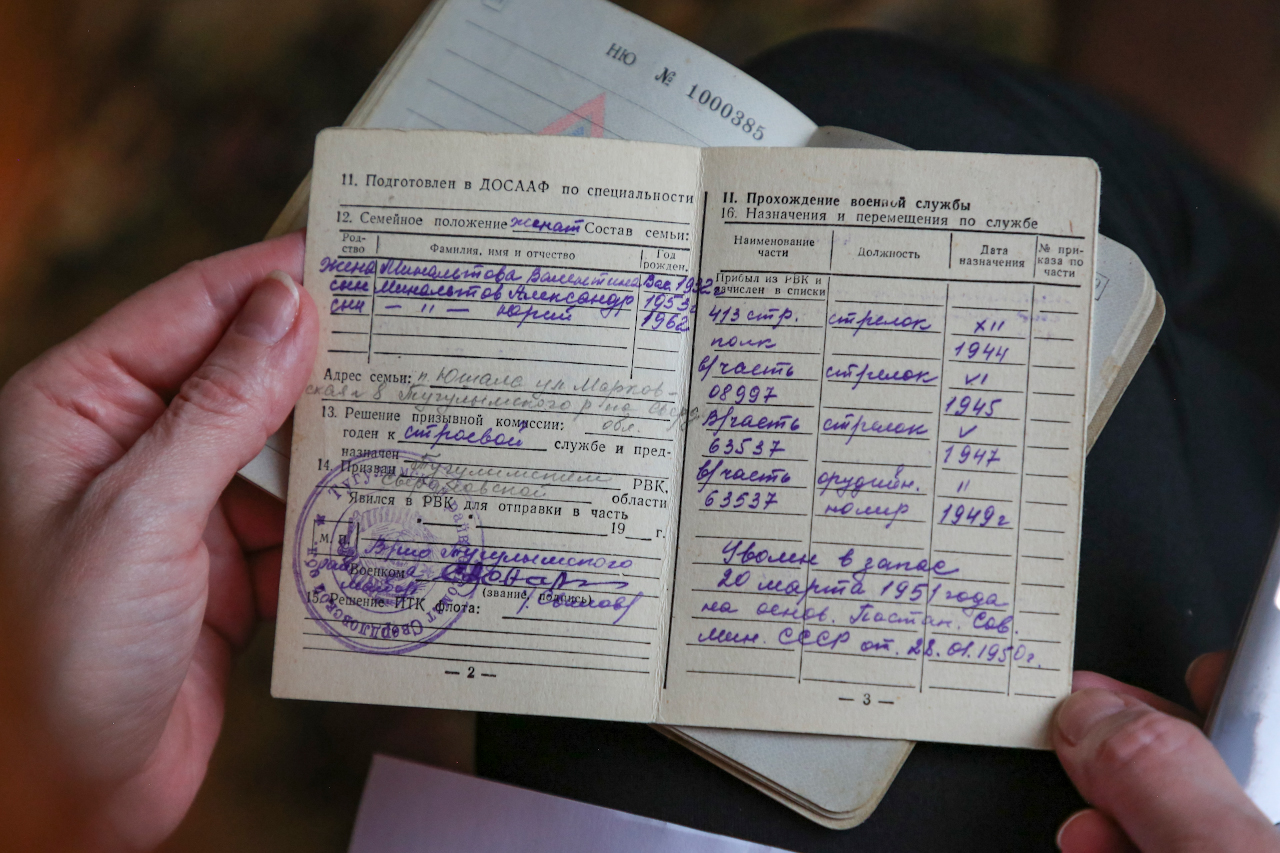 НЮ № 1000385
11. Подготовлен в ДОСААФ по специальности
12. Семейное положение женат Состав семьи:
Род-
ство
Фамилия, имя и отчество
Год
рожден.
жена Минальтова Валентина Вас. 1932г
сын Минальтов Александр 1953г
сын — " — Юрий 1962
Адрес семьи: п. Юшала ул. Марков-
ская 8 Тугулымского р-на Сверд.
обл.
13. Решение призывной комиссии:
годен к строевой службе и пред-
назначен
14. Призван Тугулымским РВК,
Свердловской области
Явился в РВК для отправки в часть
19 г.
М. П. Врио Тугулымского
Военком
майор
(звание, подпись)
15. Решение ПТК флота:
— 2 —
II. Прохождение военной службы
16. Назначения и перемещения по службе
Наименование
части
Должность
Дата
назначения
№ при-
каза по
части
Прибыл из РВК и
зачислен в списки
413 стр. стрелок XII
полк 1944
в/часть стрелок VI
08997 1945
в/часть стрелок V
63537 1947
в/часть орудийн. "
63537 номер 1949г
Уволен в запас
20 марта 1951 года
на основ. Постан. Сов.
мин. СССР от. 28.01.1950г.
— 3 —